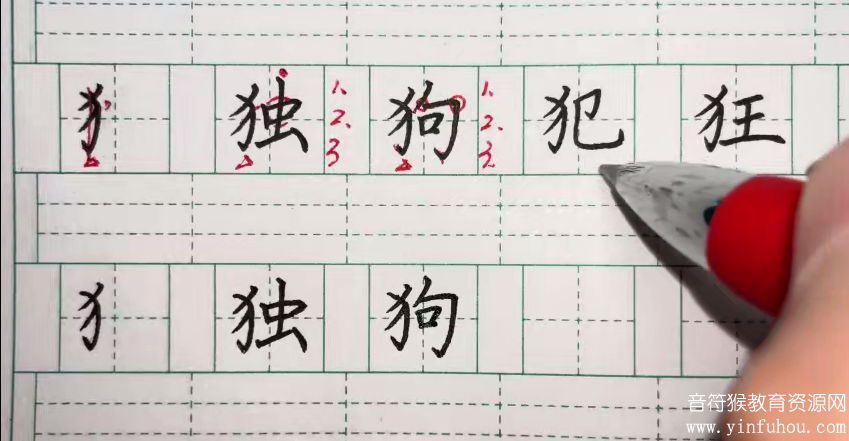 犭 独 1. 2. 3 狗 1. 2. 3. 犯 狂
犭 独 狗
音符猴教育资源网
www.yinfuhou.com